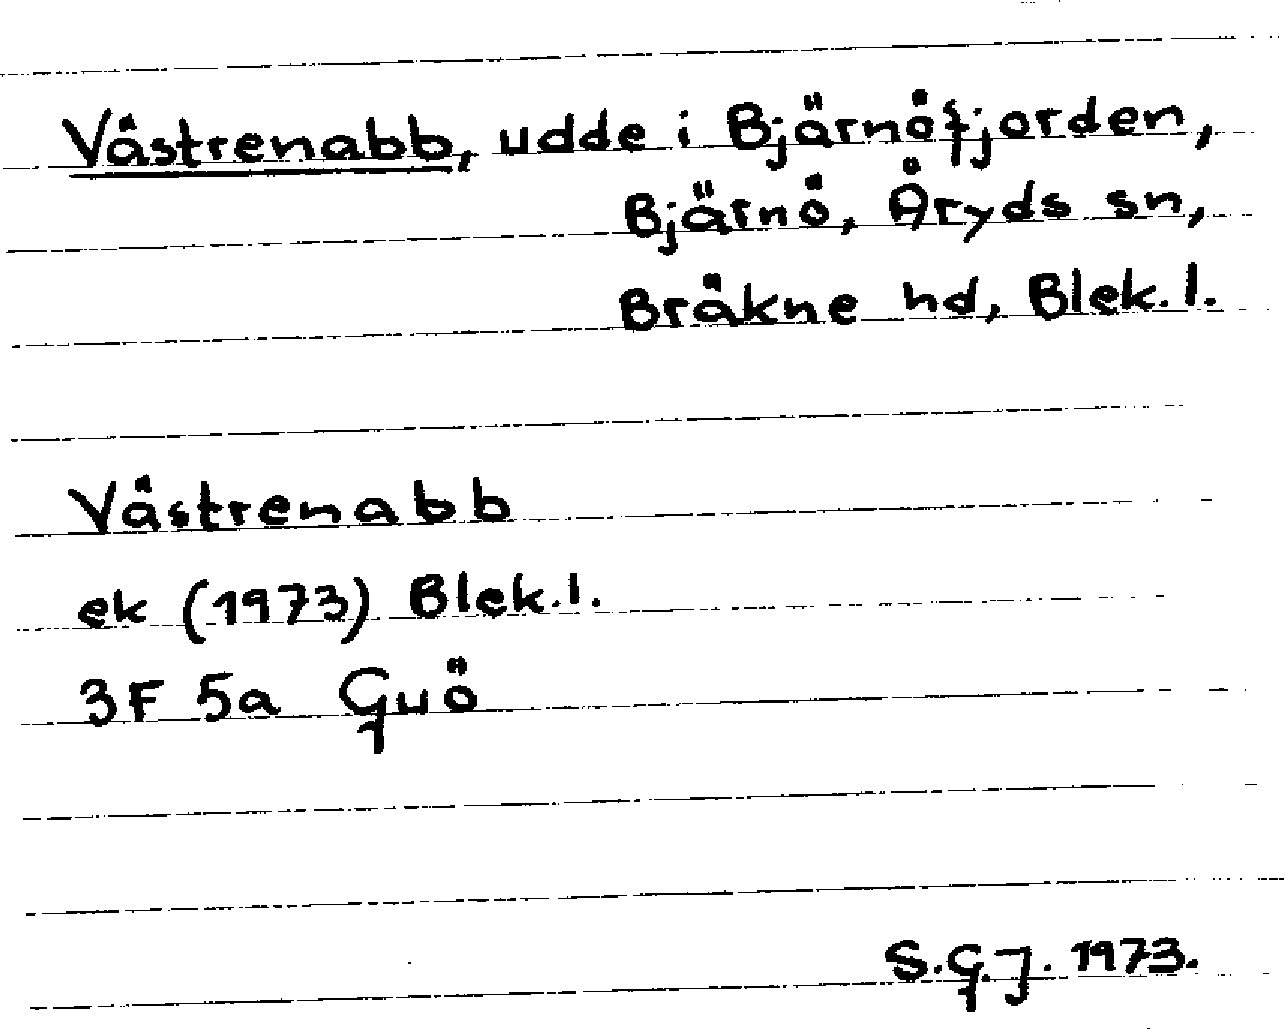 Västrenabb, udde i Bjärnöfjorden,
Bjärnö, Åryds sn,
Bräkne hd, Blek. l.
Västrenabb
ek (1973) Blek. l.
3F 5a Guö
S.G.J. 1973.